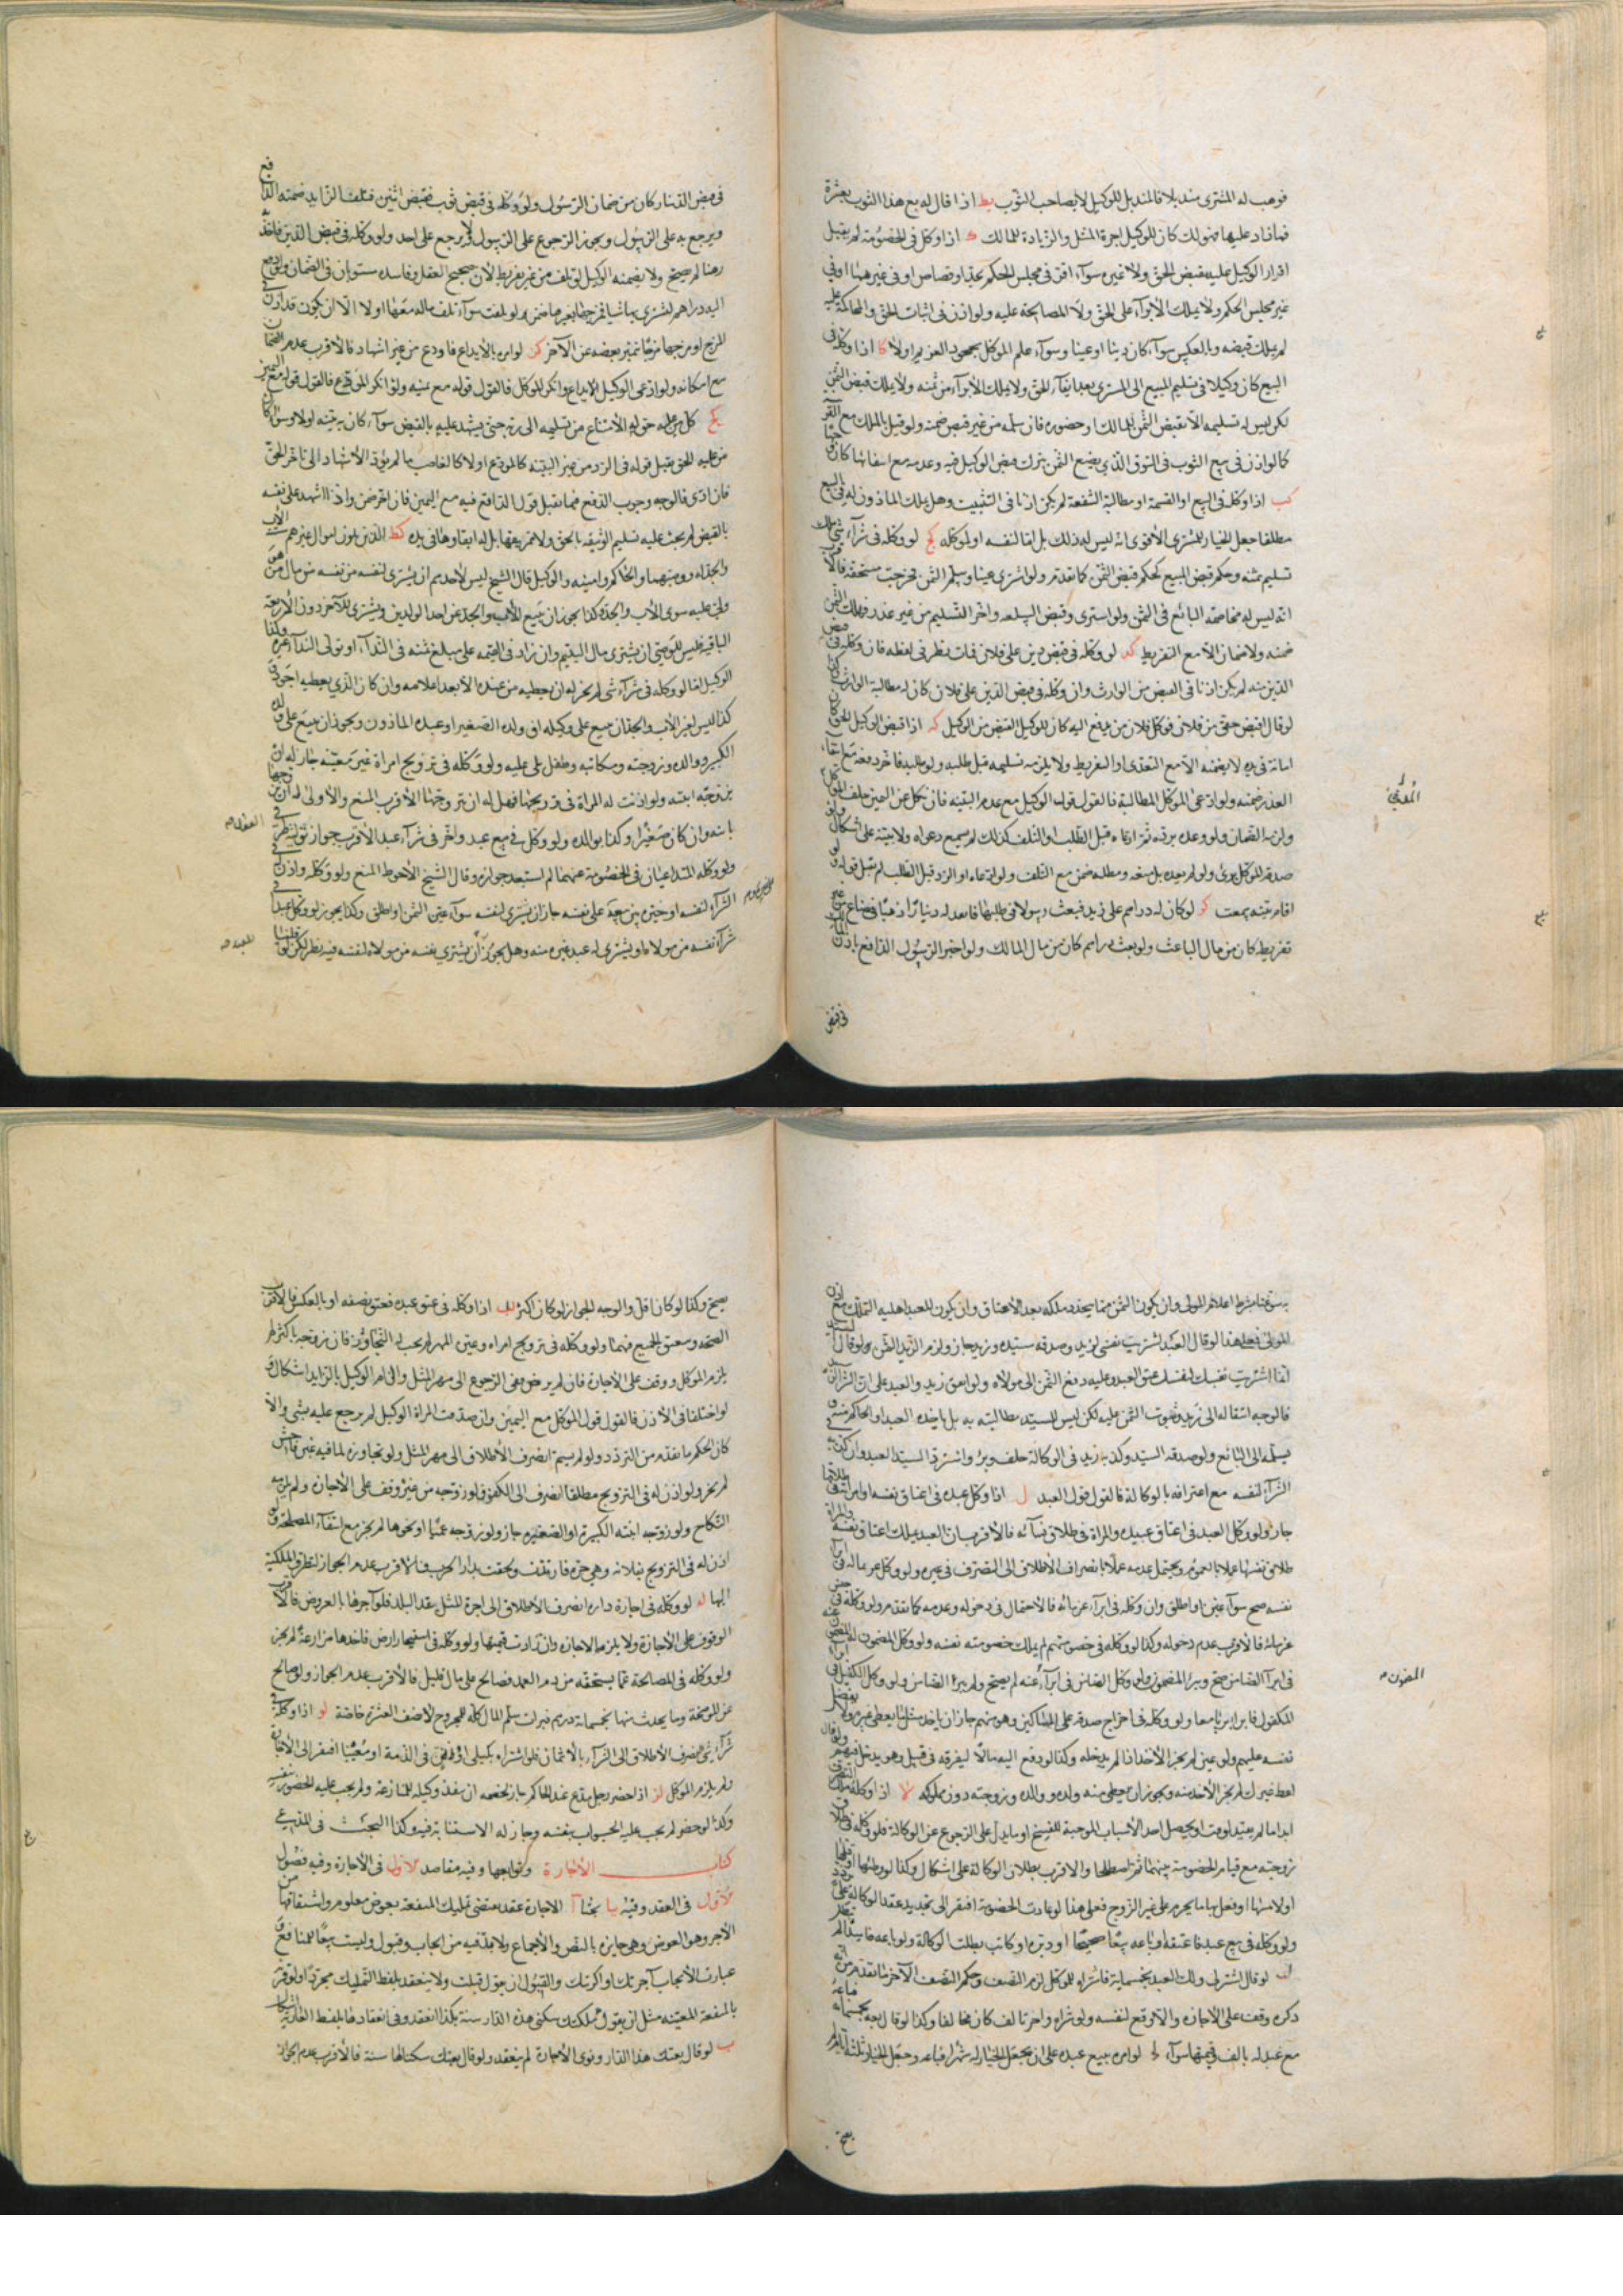 فوهب له المشتري منديلا فالمنديل للوكيل لا لصاحب الثوب يط اذا قال له بع هذا الثوب بعشرة
فما زاد عليها فهو لك كان للوكيل اجرة المثل والزيادة للمالك ك اذا وكل في الخصومة لم يقبل
اقرار الوكيل عليه بقبض الحق ولا غيره سوآء اقر في مجلس الحكم بحد او قصاص او في غيرهما او في
غير مجلس الحكم ولا يملك الابرآء على الحق ولا المصالحة عليه ولو اذن في اثبات الحق والمحاكمة عليه
لم يملك قبضه وبالعكس سوآء كان دينا او عينا وسوآء علم الموكل بجحود الغريم اولا كا اذا وكله في
البيع كان وكيلا في تسليم المبيع الى المشتري بعد ايفآء الحق ولا يملك الابرآء من ثمنه ولا يملك قبض الثمن
لكن ليس له تسليمه الا بقبض الثمن للمالك او حضوره فان سلمه من غير قبض ضمنه ولو قيل بالملك مع القرينة
كما لو اذن في بيع الثوب في السوق الذي يضيع الثمن بترك قبض الوكيل فيه وعدمه مع انتفائها كان
كب اذا وكله في البيع او القسمة او مطالبة الشفعة لم يكن اذنا في التثبيت وهل يملك الماذون له في البيع
مطلقا جعل الخيار للمشتري الاقوى انه ليس له ذلك بل لنفسه او لموكله كج لو وكله في شرآء شي ملك
تسليم ثمنه وحكم قبض المبيع كحكم قبض الثمن كما تقدم ولو اشترى عينا وسلم الثمن فخرجت مستحقة فالاقرب
انه ليس له مخاصمة البائع في الثمن ولو اشترى وقبض السلعة واخر التسليم من غير عذر فهلك الثمن
ضمنه ولا ضمان الا مع التفريط كد لو وكله في قبض دين على فلان فمات نظر في لفظه فان وكله في قبض
الدين منه لم يكن اذنا في القبض من الوارث وان وكله في قبض الدين على فلان كان له مطالبة الوارث
لو قال اقبض حقي من فلان فوكل فلان من يدفع اليه كان للوكيل القبض من الوكيل كه اذا قبض الوكيل الحق كان
امانة في يده لا يضمنه الا مع التعدى او التفريط ولا يلزمه تسليمه قبل طلبه ولو طلبه فاخر دفعه مع انتفاء
العذر ضمنه ولو ادعى الموكل المطالبة فالقول قول الوكيل مع عدم البينة فان نكل عن اليمين حلف الموكل
ولزمه الضمان ولو وعده برده ثم ادعاه قبل الطلب او التلف كذلك لم يسمع دعواه ولا بينته على اشكال
صدقه الموكل برئ ولو لم يعده بل منعه ومطله ضمن مع التلف ولو ادعاه او الرد قبل الطلب لم يقبل قوله ولو
اقام بينة سمعت كو لو كان له دراهم على زيد فبعث رسولا في طلبها فانفذ له دينارا ذهبا فضاع من غير
تفريط كان من مال الباعث ولو بعث دراهم كان من مال المالك ولو اخبر الرسول الدافع باذن المالك
في قبض
المدفئ
في قبض الدينار كان من ضمان الرسول ولو وكله في قبض ثوب فقبض اثنين فتلف الزايد ضمنه الدافع
ويرجع به على الرسول ويجوز الرجوع على الرسول ولا يرجع على احد ولو وكله في قبض الدين فاخذ
رهنا لم يصح ولا يضمنه الوكيل لو تلف من غير تفريط لان صحيح العقد وفاسده متساويان في الضمان ولو دفع
اليه دراهم ليشتري بها شيا فمزجها بغيرها ضمن لو تلفت سوآء تلف ماله معها اولا الا ان يكون قد اذن في
المزج او مزجها مزجا تميز بعضه عن الآخر كز لو امره بالايداع فاودع من غير اشهاد فالاقرب عدم الضمان
مع امكانه ولو ادعى الوكيل الايداع وانكر الموكل فالقول قوله مع يمينه ولو انكر المودع فالقول قوله مع اليمين
كح كل من عليه حق له الامتناع من تسليمه الى ربه حتى يشهد عليه بالقبض سوآء كان به بينة اولا وسوآء كان
من عليه الحق يقبل قوله في الرد من غير البينة كالمودع اولا كالغاصب ما لم يؤد الاشهاد الى تاخر الحق
فان ادى فالوجه وجوب الدفع فيما يقبل قول الدافع فيه مع اليمين فان اخر ضمن واذا اشهد على نفسه
بالقبض لم يجب عليه تسليم الوثيقة بالحق ولا تمزيقها بل له ابقاؤها في يده كط الذين يلون اموال غيرهم ستة الاب
والجد له ووصيهما والحاكم وامينه والوكيل قال الشيخ ليس لاحدهم ان يشتري لنفسه من نفسه من مال من
ولي عليه سوى الاب والجد وكذا يجوز ان يبيع للاب والجد عن احد الولدين ويشتري للآخر دون الاربعة
الباقية فليس للوصي ان يشتري مال اليتيم وان زاد في القيمة على مبلغ ثمنه في الندآء او تولى الندآء غيره وكذا
الوكيل اما لو وكله في شرآء شي لم يجز له ان يعطيه من عنده الا بعد اعلامه وان كان الذي يعطيه اجود في
كذا ليس لغير الاب والجد ان يبيع على وكيله او ولده الصغير او عبده الماذون ويجوز ان يبيع على ولده
الكبير ووالده وزوجته ومكاتبه وطفل يلي عليه ولو وكله في تزويج امراة غير معينة جاز له ان
يزوجه ابنته ولو اذنت له المراة في تزويجها فهل له ان يتزوجها الاقرب المنع والاولى له ان يزوجها
بابنه وان كان صغيرا وكذا بوالده ولو وكل في بيع عبد وآخر في شرآء عبد الاقرب جواز توليه طرفي
ولو وكله المتداعيان في الخصومة عنهما لم استبعد جوازه وقال الشيخ الاحوط المنع ولو وكله واذن في
الشرآء لنفسه او خيره بين بيعه على نفسه جاز ان يشتري لنفسه سوآء عين الثمن او اطلق وكذا يجوز لو وكل عبدا في
شرآء نفسه من مولاه او يشتري له عبد غيره منه وهل يجوز ان يشتري نفسه من مولاه لنفسه فيه نظر لكن لو قلنا
به سوغنا بشرط اعلام المولى وان يكون الثمن مما يتجدد ملكه بعد الاعتاق وان يكون للعبد اهلية التملك مع اذن
المولى فعلى هذا لو قال العبد اشتريت نفسي لزيد وصدقه سيده وزيد جاز ولزم الزيد الثمن ولو قال السيد
انما اشتريت نفسك لنفسك عتق العبد وعليه دفع الثمن الى مولاه ولو اتفق زيد والعبد على ان الشرآء لزيد
فالوجه انتقاله الى زيد وثبوت الثمن عليه لكن ليس للسيد مطالبته به بل ياخذه العبد او الحاكم منه
يسلمه الى البائع ولو صدقه السيد وكذبه زيد في الوكالة حلف وبرئ واسترد السيد العبد وان كذبه في
الشرآء لنفسه مع اعترافه بالوكالة فالقول قول العبد ل اذا وكل عبده في اعتاق نفسه او امراته في طلاقها
جاز ولو وكل العبد في اعتاق عبيده والمراة في طلاق نسآئه فالاقرب ان العبد يملك اعتاق نفسه والمراة
طلاق نفسها عملا بالعموم ويحتمل عدمه عملا بانصراف الاطلاق الى التصرف في غيره ولو وكل غريما له في ابرآء
نفسه صح سوآء عين او اطلق وان وكله في ابرآء غرمائه فالاحتمال في دخوله وعدمه كما تقدم ولو وكله في حبس
غرمائه فالاقرب عدم دخوله وكذا لو وكله في خصومتهم لم يملك خصومته نفسه ولو وكل المضمون له المضمون عنه
في ابرآء الضامن صح وبرئ المضمون ولو وكل الضامن في ابرآء عنه لم يصح ولم يبرئ الضامن ولو وكل الكفيل في ابرآء
المكفول فابراه برئا معا ولو وكله في اخراج صدقة على المساكين وهو منهم جاز ان ياخذ مثل ما يعطي غيره ولا يفضل
نفسه عليهم ولو عين لم يجز الاخذ اذا لم يدخله وكذا لو دفع اليه مالا ليفرقه في قبيل وهو يدخل فيهم ولو قال
اعط غيرك لم يجز الاخذ منه ويجوز ان يعطي منه ولده ووالده وزوجته دون مملوكه لا اذا وكله ملك التصرف
ابدا ما لم يقيد لوقت او يحصل احد الاسباب الموجبة للفسخ او ما يدل على الرجوع عن الوكالة فلو وكله في طلاق
زوجته مع قيام الخصومة بينهما ثم اصطلحا والاقرب بطلان الوكالة على اشكال وكذا لو وطئها او قبلها
او لامسها او فعل بها ما يحرم على غير الزوج فعلى هذا لو عادت الخصومة افتقر الى تجديد عقد الوكالة على نظر
ولو وكله في بيع عبد فاعتقه او باعه بيعا صحيحا او دبره او كاتب بطلت الوكالة ولو باعه فاسدا لم
لب لو قال اشتر لي ذلك العبد بخمسماية فاشتراه للموكل لزم النصف وحكم النصف الآخر ما تقدم من انه
ذكره وقفت على الاجازه والا وقع لنفسه ولو شراه واخر بالف كان مخالفا وكذا لو قال بعه بخمسماية فباعه
مع عبد له بالف قيمتهما سوآء لج لو امره ببيع عبده على ان يجعل الخيار له شهرا فباعه وجعل الخيار ثلثة ايام لم
يصح
المضمون م
يصح وكذا لو كان اقل والوجه الجواز لو كان اكثر لد اذا وكله في عتق عبده فعتق نصفه او بالعكس فالاقرب
الصحة ومعتق الجميع فيهما ولو وكله في تزويج امراه وعين المهر لم يجب له التجاوز فان زوجه باكثر لم
يلزم الموكل ووقف على الاجازة فان لم يرض ففي الرجوع الى مهر المثل والزام الوكيل بالزايد اشكال ولو
لو اختلفا في الاذن فالقول قول الموكل مع اليمين وان صدقت المراة الوكيل لم يرجع عليه بشي والا
كان الحكم ما تقدم من التردد ولو لم يسم انصرف الاطلاق الى مهر المثل ولو تجاوزه لما فيه غبن فاحش
لم يجز ولو اذن له في التزويج مطلقا انصرف الى الكفؤ ولو زوجه من غيره وقف على الاجازة ولم يلزمه
النكاح ولو زوجه ابنته الكبيرة او الصغيرة جاز ولو زوجه عميا او نحوها لم يجز مع انتفآء المصلحة ولو
اذن له في التزويج بفلانه وهي حرة فارتدت ولحقت بدار الحرب فالاقرب عدم الجواز لتطرق الملكية
اليها له لو وكله في اجارة داره انصرف الاطلاق الى اجرة المثل بنقد البلد فلو آجرها بالعروض فالاقرب
الوقوف على الاجازة ولا يلزم الاجازه وان زادت قيمتها ولو وكله في استيجار ارض فاخذها مزارعة لم يجز
ولو وكله في المصالحة عما يستحقه من دم العمد فصالح على مال قليل فالاقرب عدم الجواز ولو صالح
عن الموضحة وما يحدث منها بخمسماية درهم فبرات سلم المال كله للمجروح لا نصف العشر خاصة لو اذا وكله في
شرآء شي انصرف الاطلاق الى الشرآء بالاثمان فلو اشتراه بمكيل او موزون في الذمة او معينا افتقر الى الاجازة
ولم يلزم الموكل لز اذا حضر رجل يدع عند الحاكم جاز لخصمه ان ينفذ وكيله للمنازعة ولم يجب عليه الحضور بنفسه
وكذا لو حضر لم يجب عليه الجواب بنفسه وجاز له الاستنابة فيه وكذا البحث في المدعي
كتاب الاجارة وتوابعها وفيه مقاصد الاول في الاجارة وفيه فصول
الاول في العقد وفيه يا بحثا آ الاجارة عقد مقتضى تمليك المنفعة بعوض معلوم واشتقاقها من
الاجر وهو العوض وهي جايزه بالنص والاجماع ولا بد فيه من ايجاب وقبول وليست بيعا للمنافع و
عبارت الايجاب آجرتك او اكريتك والقبول ان يقول قبلت ولا ينعقد بلفظ التمليك مجردا ولو قرن
بالمنفعة المعينه مثل ان يقول ملكتك سكنى هذه الدار سنة بكذا انعقد وفي انعقادها بلفظ العارية اشكال
ب لو قال بعتك هذا الدار ونوى الاجارة لم ينعقد ولو قال بعتك سكناها سنة فالاقرب عدم الجواز